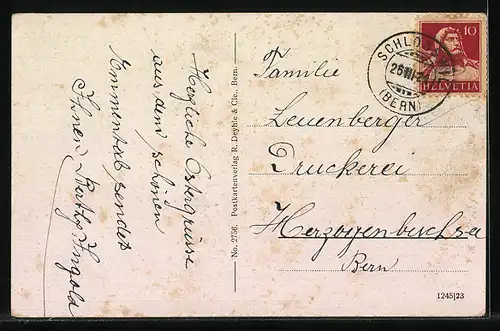 Herzliche Ostergrüsse
aus dem schönen
Emmental sendet
Ihnen Ingold
No. 2756. Postkartenverlag R. Deyhle & Cie., Bern.
10
HELVETIA
(BERN)
Familie
Leuenberger
Druckerei
Herzogenbuchsee
Bern
1245|23